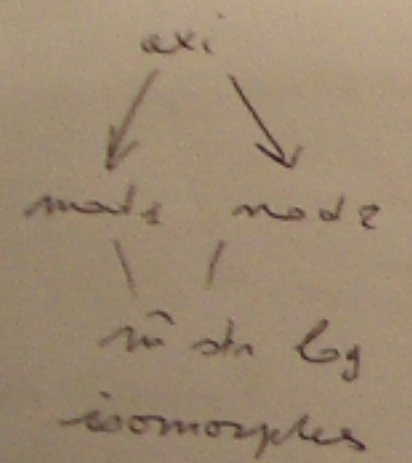 axi
mod1 mod2
m̂ str log
isomorphes